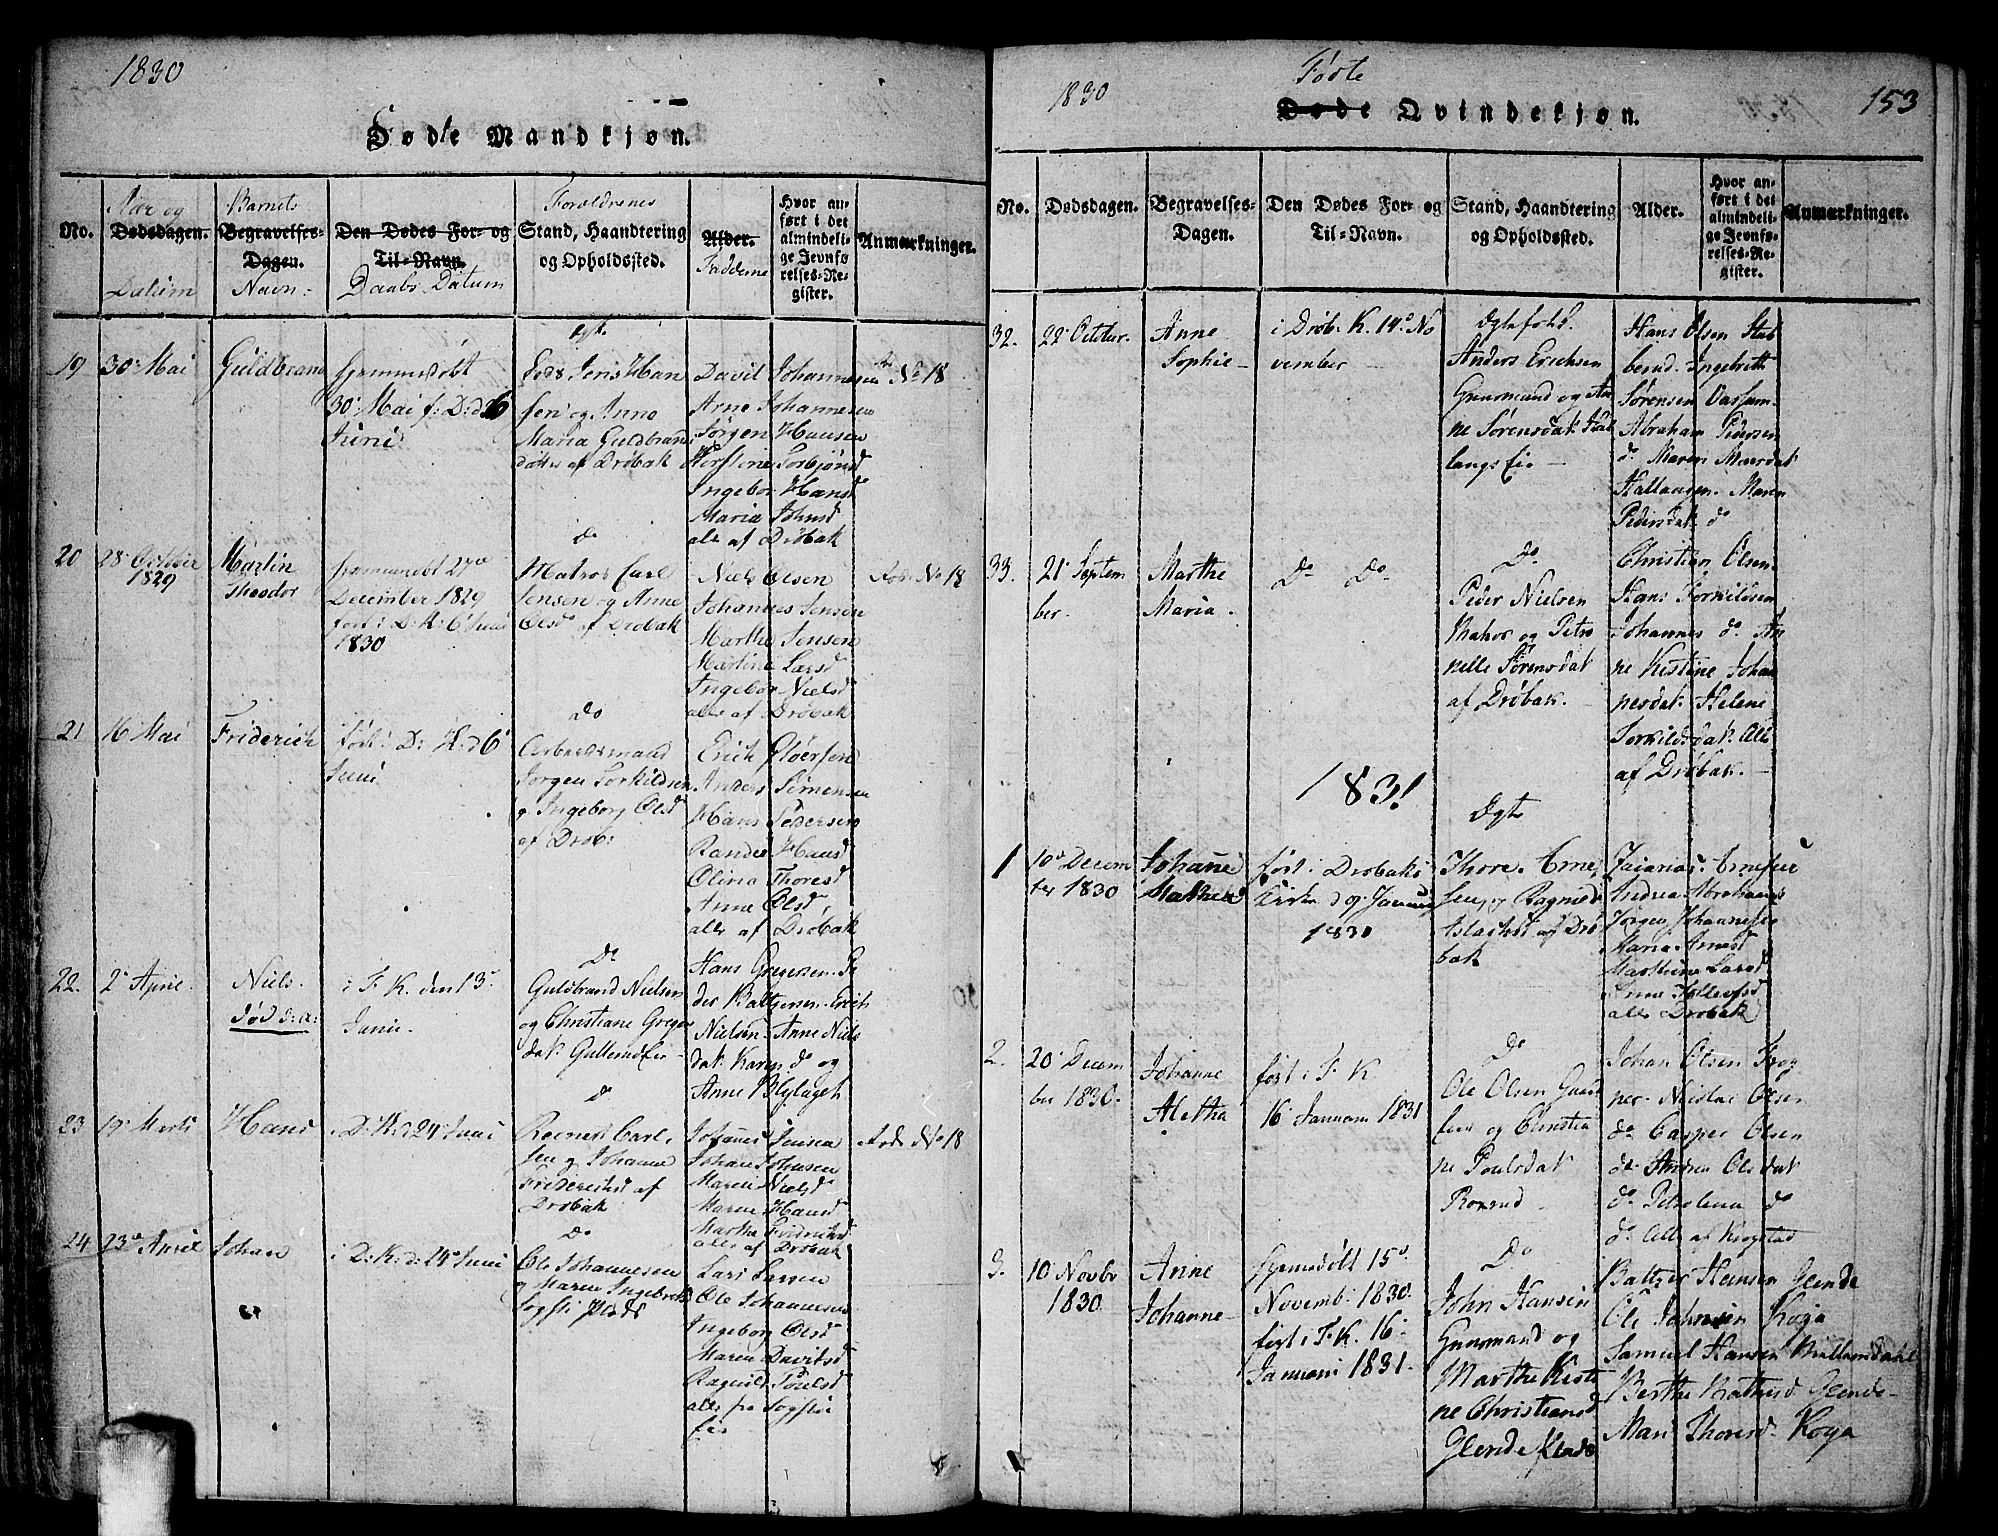 1830
Fødte Mandkjøn.
No.
Aar og
Dødsdagen.
Datum
Barnets
Begravelses-
Dagen.
Navn
Den Dødes For- og
Til-Navn.
Daabs Datum
Forældrenes
Stand, Haandtering
og Opholdssted.
Alder.
Fadderne
Hvor an-
ført i det
almindeli-
ge Jevnfø-
relses-Re-
gister.
Anmærkninger.
19
30 Mai
Guldbrand
hjemmedøbt
30 Mai f: D: d 6
Juni
ægt
Hansen og Anne
Maria Guldbrands
datter af Drøbak
David Johannesen
Arne Johannesen
Jørgen Hansen
Kirstine Torbjørnsd
Ingebor Hansd
Maria Johnsd
alle af Drøbak
No 18
20
28 October
1829
Martin
Theodor
hjemmedøbt 27de
December 1829
fort i D: K: 6 Juni
1830
do
Matros Carl
Jensen og Anne
Olsd af Drøbak
Niels Olsen
Johannes Jensen
Marthe Jensen
Martine Larsd
Ingebor Nielsd
alle af Drøbak
No 18
21
16 Mai
Friderich
fort i D: K: d 6
Juni
Do
Arbeidsmand
Jørgen Torkildsen
og Ingeborg Olsd
af Drøb:
Erich
Anders Sørensen
Hans Pedersen
Hansd
Olina Thoresd
Anne Olsd
alle af Drøbak
22.
2 April
Niels
død d: a:
i F. K. den 13
Junii
Do
Guldbrand Nielsen
og Christiane Greger
dat. Gullerudeie
Hans Gregersen. Pe
der Baltzersen. Erich
Nielsen. Anne Niels
dat. Karen do og
Anne
23
19 Marts
Hans
i D: K: d 24 Juni
d
Carl
sen og Johanne
Friderichsd af
Drøbak
Johannes Jensen
Johan Johnsen
Maren Nielsd
Maren Hansd
Marthe Fridrichsd
alle af Drøbak
No 18
24
23 April
Johan
i D: K: d: 24 Juni
Do
Ole Johannesen
og Maren Ingebrets
Sogsti Plads
Lars Larsen
Ole Johannesen
Ingeborg Olsd
Maren Davidsd
Ragnild Poulsd
alle fra Sogstie
eie
1830
Fødte
Døde Qvindekjøn.
153
No.
Dødsdagen.
Begravelses-
Dagen.
Den Dødes For- og
Til-Navn.
Stand, Haandtering
og Opholdssted.
Alder.
Hvor an-
ført i det
almindeli-
ge Jevnfø-
relses-Re-
gister.
Anmærkninger.
32.
22 Octobr.
Anne
Sophie
i Drøb. K. 14 No
vember
Ægtefolk.
Anders Erichsen
Gaasmand og An
ne Sørensdat.
langseie
Hans Olsen Stub
berud. Ingebreth
Sørensen
Abraham Pedersen
do Maren
Hallangen. Maren
Pedersdat. do
33.
21 Septem
ber.
Marthe
Maria.
Do Do
Do
Peder Nielsen
Matros og Petro
nelle Sørensdat
af Drøbak.
Christian Olsen
Hans Torkildsen
Johannes do An
ne Kistine Johan
nesdat. Helene
Torkildsdat. Alle
af Drøbak.
1831
1
10 Decem
ber 1830
Johanne
Mathea
fort i Drøbaks
Kirke d 09 Januarij
1831
Ægte
Thore Arne
sen og Ragnild
Aslachsd af Drø
bak
Zacarias Arnesen
Andreas Abrahams
Jørgen Johannesen
Maria Arnesd
Marthine Larsd
Anne Tollefsd
alle Drøbak
2.
20 Decem
ber 1830.
Johanne
Aletha
fort i F. K.
16 Januarii 1831
Do
Ole Olsen Gaard
feier og Christia
ne Poulsdat
Roxrud
Johan Olsen Frog
ner. Nicolai Olsen
do Casper Olsen
do Andrea Olsdat
do Petrolena do
do Alle af Krogstad
3.
10 Novbr
1830
Anne
Johanne
hjemedøbt 15
Novemb. 1830.
fort i F. K. 16
Januarii 1831.
Do
John Hansen
Gaasmand og
Marthe Kisti
ne Christiansd
Glende
Baltzer Hansen Glende
Ole Johnsen Koja
Samuel Hansen
Berthe Glende
Mari Thoresd. Koja